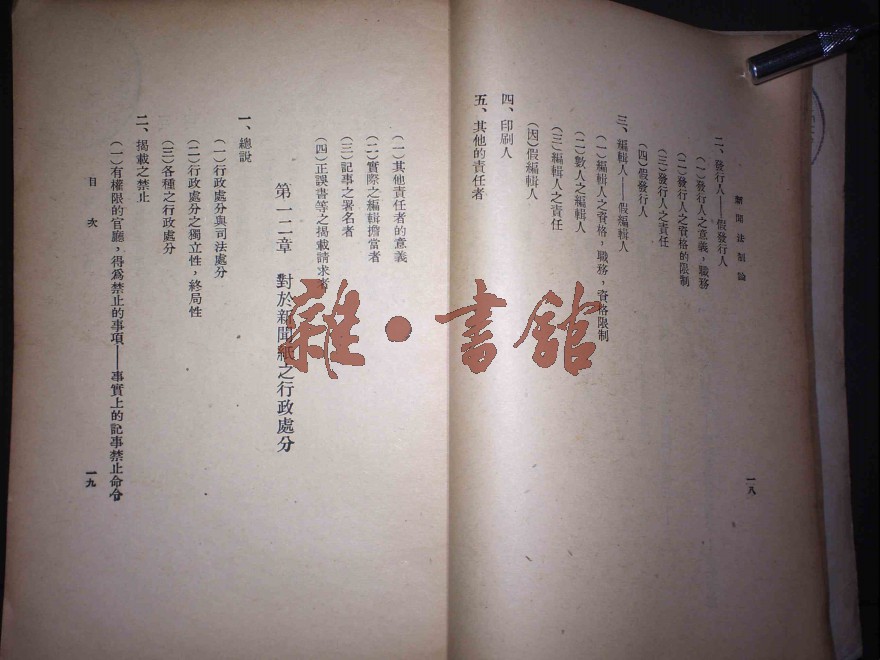 新聞法制論
二、發行人——假發行人
(一)發行人之意義，職務
(二)發行人之資格的限制
(三)發行人之責任
(四)假發行人
三、編輯人——假編輯人
(一)編輯人之資格，職務，資格限制
(二)數人之編輯人
(三)編輯人之責任
(四)假編輯人
四、印刷人
五、其他的責任者
一八
(一)其他責任者的意義
(二)實際之編輯擔當者
(三)記事之署名者
(四)正誤書等之揭載請求者
第一二章 對於新聞紙之行政處分
一、總說
(一)行政處分與司法處分
(二)行政處分之獨立性，終局性
(三)各種之行政處分
二、揭載之禁止
(一)有權限的官廳，得為禁止的事項——事實上的記事禁止命令
目次
一九
雜·書館